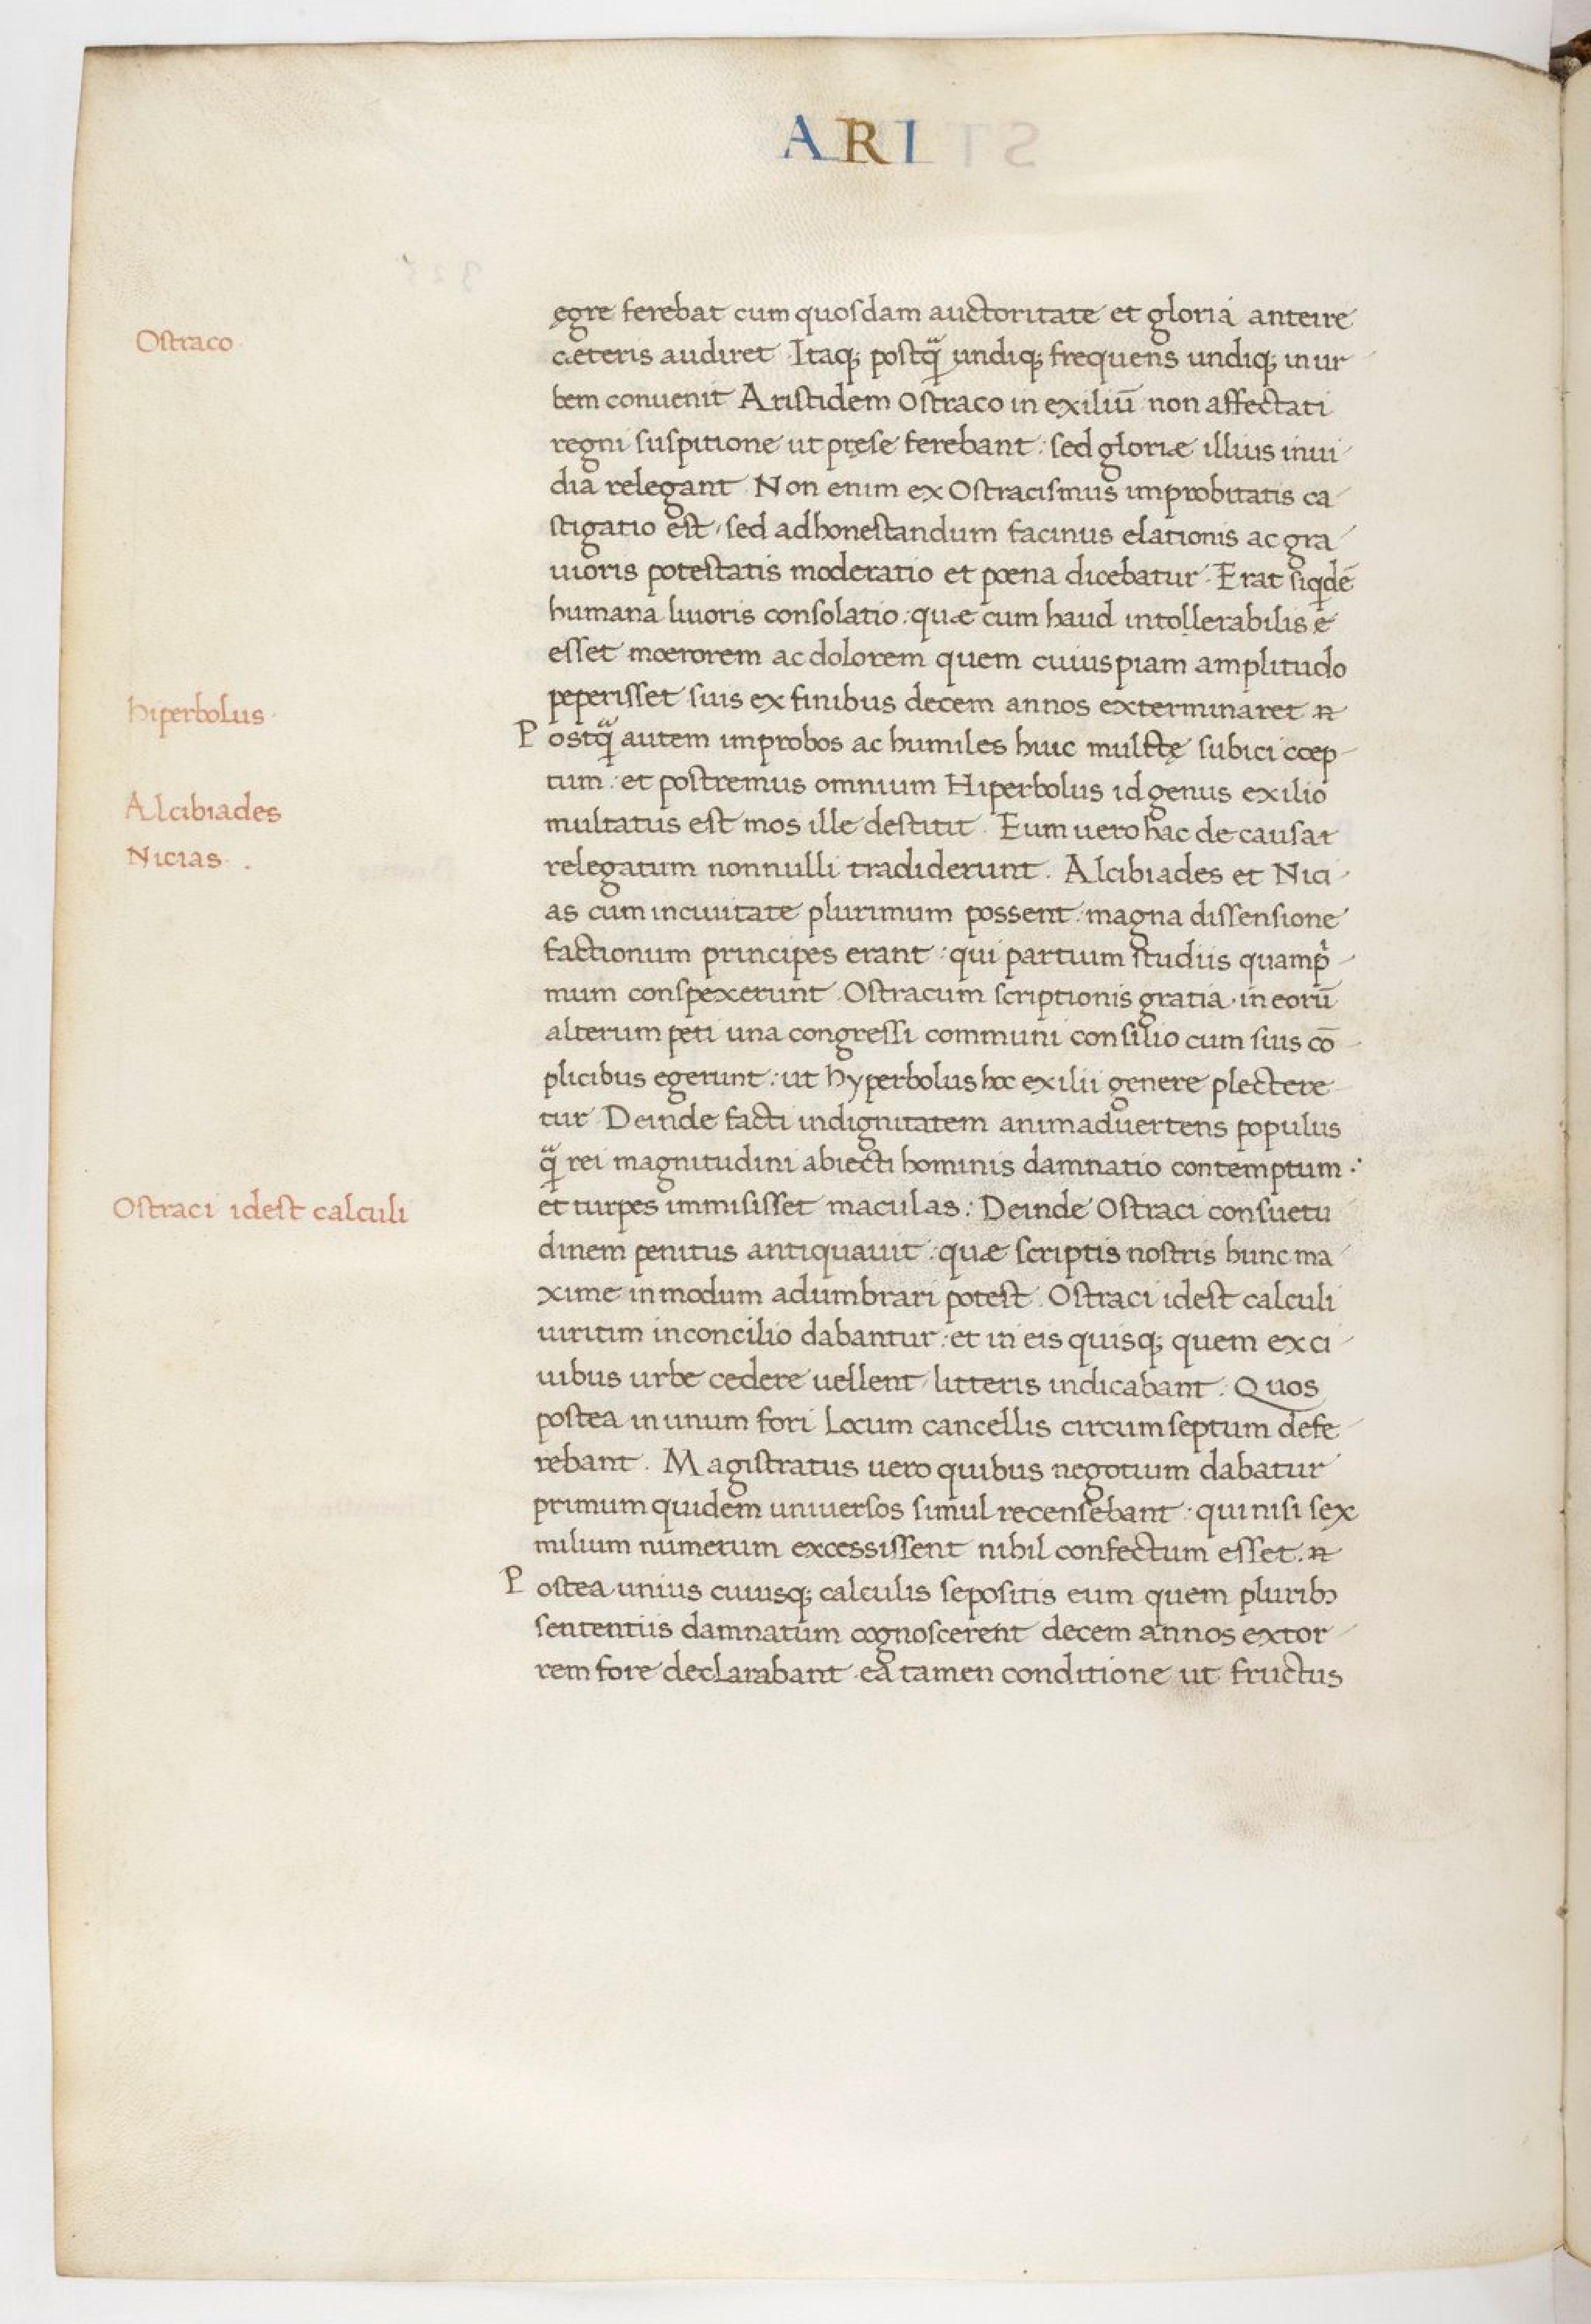 ARI
Ostraco.
ęgre ferebat cum quosdam auctoritate et gloria anteire
cæteris audiret Itaq; postq̃ undiq; frequens undiq; in ur
bem conuenit Aristidem Ostraco in exiliū non affectati
regni suspitione ut pręse ferebant: sed gloriæ illius inui
dia relegant Non enim ex Ostracismus improbitatis ca
stigatio est, sed adhonestandum facinus elationis ac gra
uioris potestatis moderatio et pœna dicebatur. Erat siqdē
humana liuoris consolatio: quæ cum haud intollerabilis ę
esset moerorem ac dolorem quem cuiuspiam amplitudo
peperisset suis ex finibus decem annos exterminaret
Hiperbolus.
Postq̃ autem improbos ac humiles huic multtę subici coep
tum: et postremus omnium Hiperbolus id genus exilio
Alcibiades
multatus est mos ille destitit. Eum uero hac de causa
Nicias.
relegatum nonnulli tradiderunt. Alcibiades et Nici
as cum inciuitate plurimum possent: magna dissensione
factionum principes erant: qui partium studiis quampi
mum conspexerunt Ostracum scriptionis gratia. in eorū
alterum peti una congressi communi consilio cum suis cō
plicibus egerunt: ut hyperbolus hoc exilii genere plectere
tur Deinde facti indignitatem animaduertens populus
q̃ rei magnitudini abiecti hominis damnatio contemptum
Ostraci idest calculi
et turpes immisisset maculas: Deinde Ostraci consuetu
dinem penitus antiquauit: quæ scriptis nostris hunc ma
xime in modum adumbrari potest. Ostraci idest calculi
uiritim in concilio dabantur: et in eis quisq; quem ex ci
uibus urbe cedere uellent, litteris indicabant. Quos
postea in unum fori locum cancellis circumseptum defe
rebant. Magistratus uero quibus negotium dabatur
primum quidem uniuersos simul recensebant: qui nisi sex
milium numerum excessissent nihil confectum esset.
Postea unius cuiusq; calculis sepositis eum quem pluribꝫ
sententiis damnatum cognoscerent decem annos extor
rem fore declarabant ea tamen conditione ut fructus